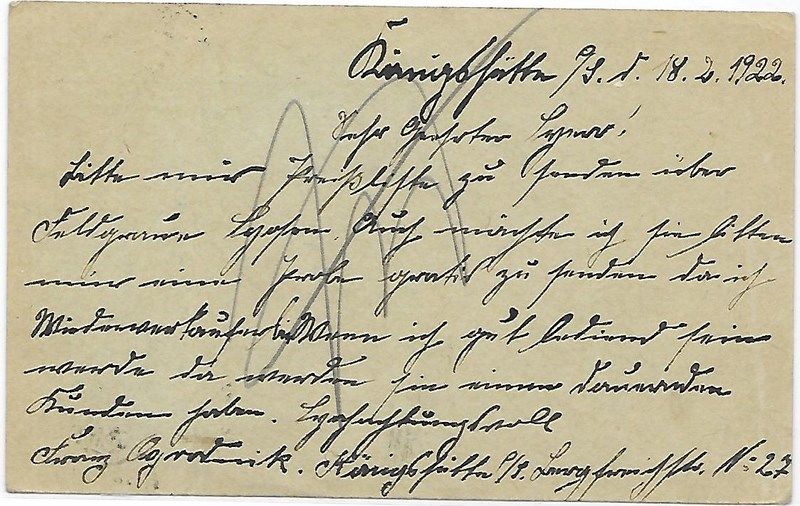 Königshütte O/S. d. 18. 2. 1922.
Sehr Geehrter Herr!
Bitte mir Preißliste zu senden über
Feldgraue Hosen Auch möchte ich sie bitten
mir eine Probe gratis zu senden da ich
Wiederverkaufer bin Wenn ich gut bediend sein
werde da werden sie einen dauernden
Kunden haben. Hochachtungsvoll
Franz Ogrodnik. Königshütte O/S. No 27